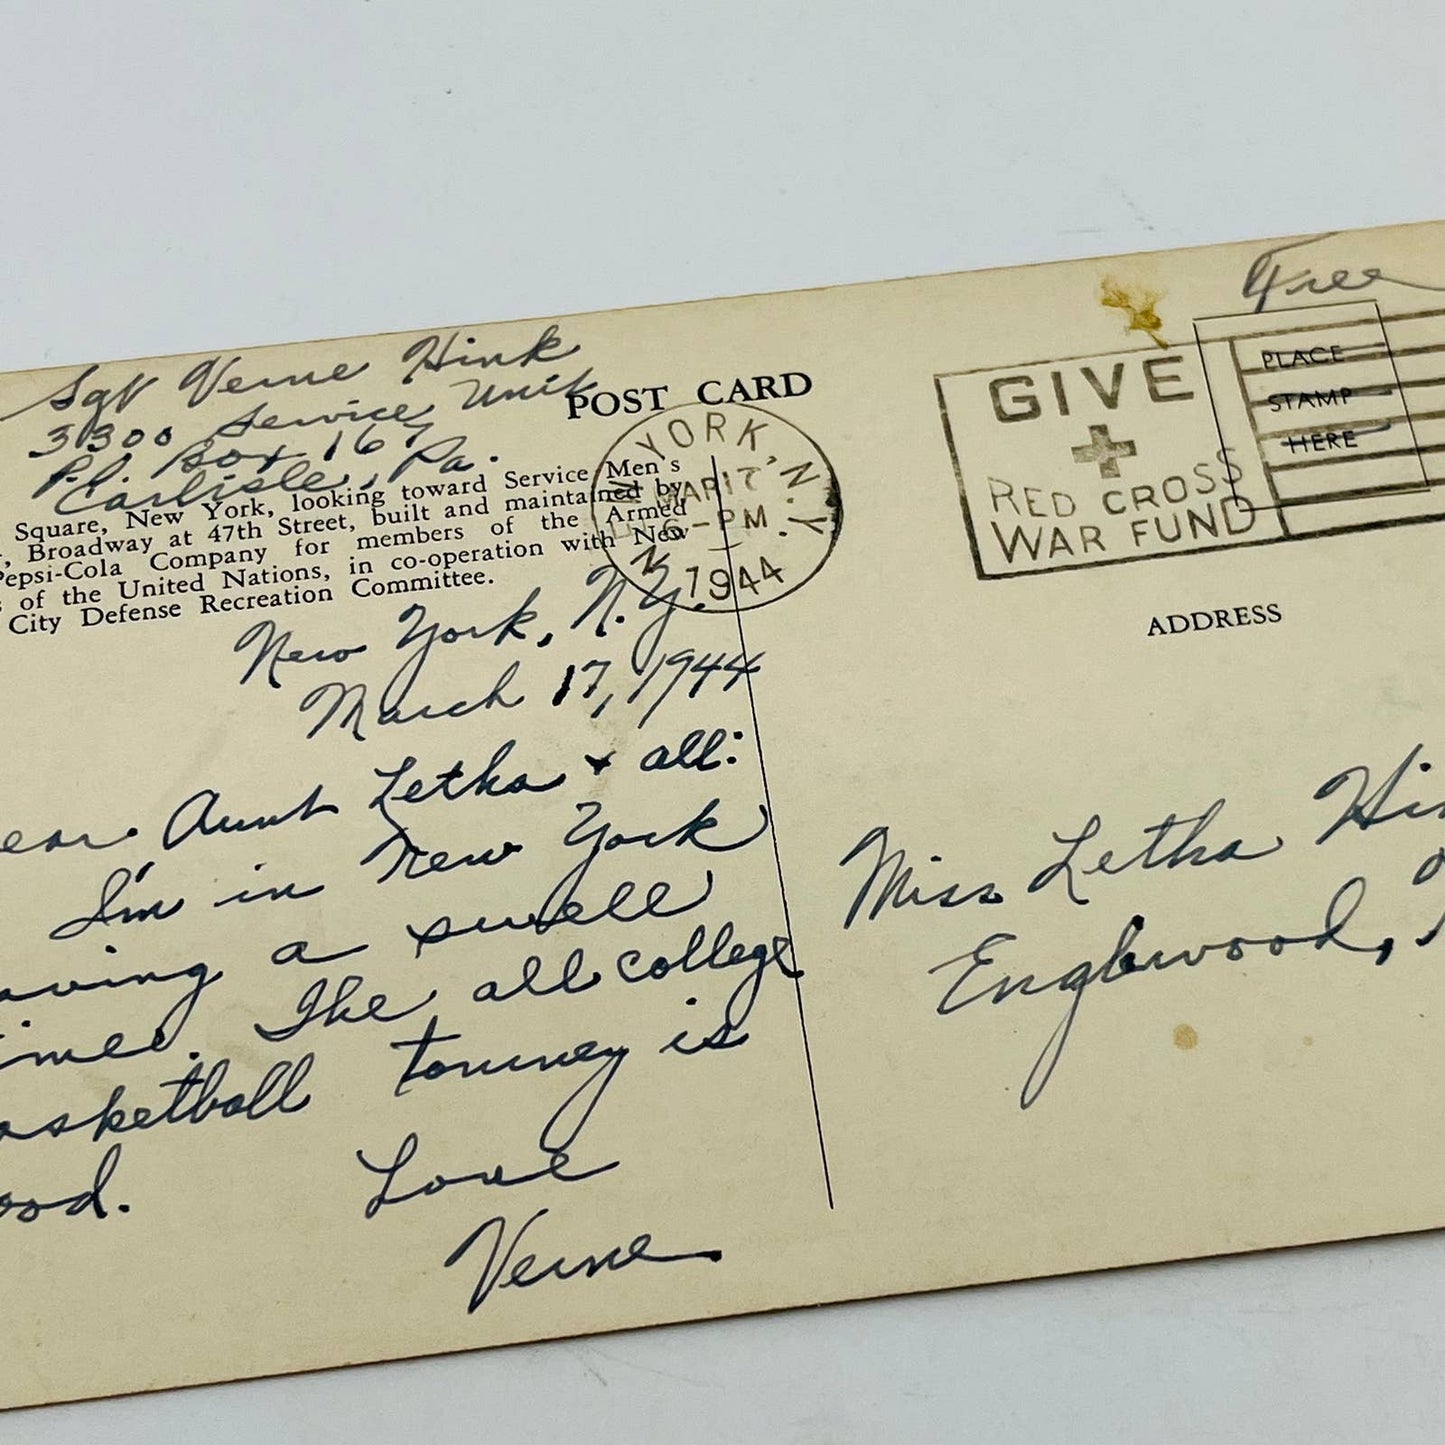 Sgt Verne Hink
3300 Service Unit
P.O. Box 167
Carlisle, Pa.
POST CARD
Square, New York, looking toward Service Men's
, Broadway at 47th Street, built and maintained by
Pepsi-Cola Company for members of the Armed
s of the United Nations, in co-operation with New
City Defense Recreation Committee.
NEW YORK, N.Y.
MAR 17
6-PM
1944
GIVE
RED CROSS
WAR FUND
Free
PLACE
STAMP
HERE
New York, N.Y.
March 17, 1944
ear Aunt Letha + all:
I'm in New York
aving a swell
ime. The all college
asketball tourney is
ood.
Love
Verne
ADDRESS
Miss Letha Hin
Englewood,